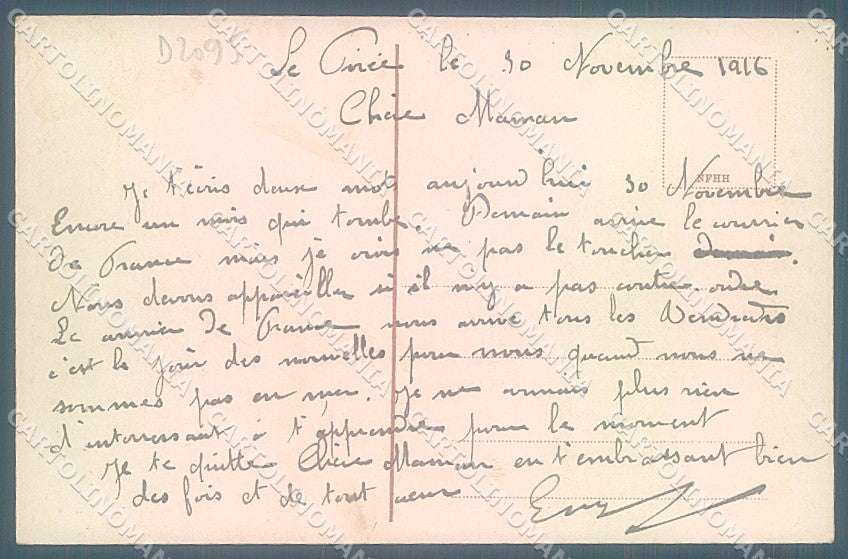 D209
Le Pirée le 30 Novembre 1916
Chère Maman
Je t'écris deux mots aujourd'hui 30 Novembre
Encore un mois qui tombe. Demain arrive le courrier
De France mais je crois ne pas le toucher
Nous devons appareiller si il n'y a pas contre ordre.
Le courrier De France nous arrive tous les Vendredis
c'est le jour des nouvelles pour nous quand nous ne
sommes pas en mer. Je ne connais plus rien
d'interressant à t'apprendre pour le moment
Je te quitte Chère Maman en t'embrassant bien
des fois et de tout cœur
NFHH
CARTOLINOMANIA